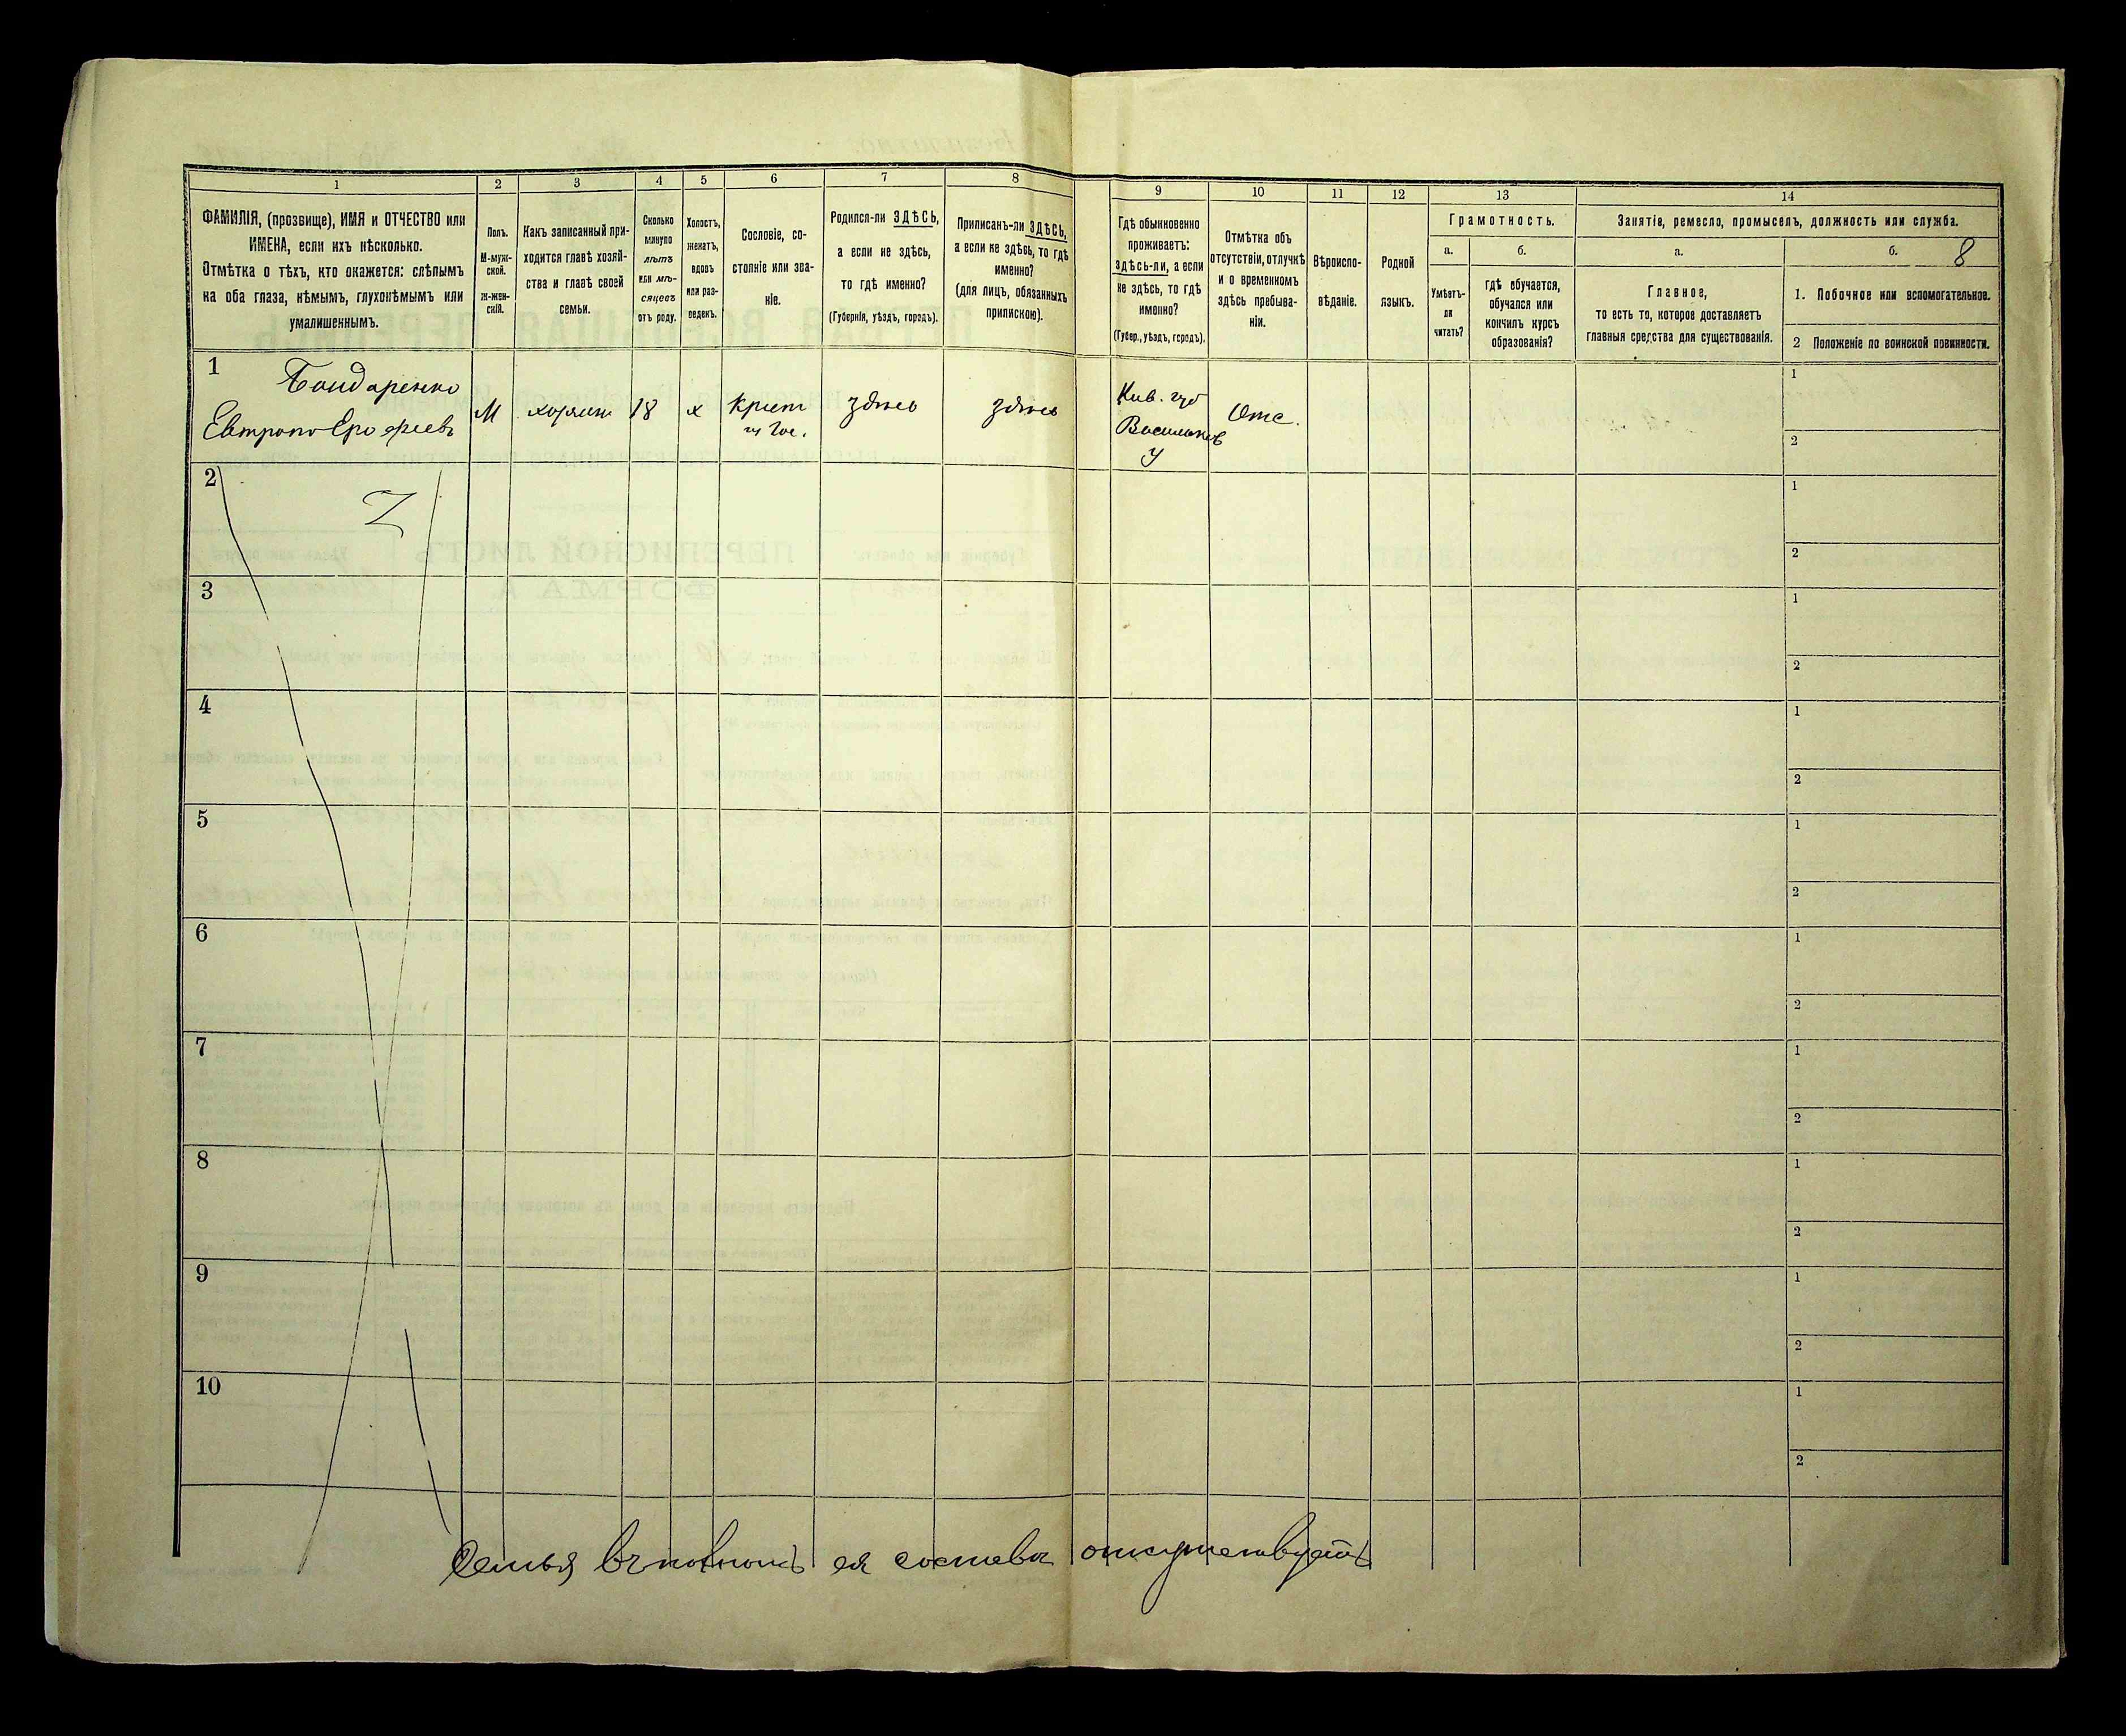 1 2 3 4 5 6 7 8 9 10 11 12 13 14
ФАМИЛІЯ, (прозвище), ИМЯ и ОТЧЕСТВО или
ИМЕНА, если ихъ нѣсколько.
Отмѣтка о тѣхъ, кто окажется: слѣпымъ
на оба глаза, нѣмымъ, глухонѣмымъ или
умалишеннымъ.
Полъ.
М-муж-
ской.
ж-жен-
скій.
Какъ записанный при-
ходится главѣ хозяй-
ства и главѣ своей
семьи.
Сколько
минуло
лѣтъ
или мѣ-
сяцевъ
отъ роду.
Холостъ,
женатъ,
вдовъ
или раз-
веденъ.
Сословіе, со-
стояніе или зва-
ніе.
Родился-ли ЗДѢСЬ,
а если не здѣсь,
то гдѣ именно?
(Губернія, уѣздъ, городъ).
Приписанъ-ли ЗДѢСЬ,
а если не здѣсь, то гдѣ
именно?
(для лицъ, обязанныхъ
припискою).
Гдѣ обыкновенно
проживаетъ:
здѣсь-ли, а если
не здѣсь, то гдѣ
именно?
(Губер., уѣздъ, городъ).
Отмѣтка объ
отсутствіи, отлучкѣ
и о временномъ
здѣсь пребыва-
ніи.
Вѣроиспо-
вѣданіе.
Родной
языкъ.
Грамотность.
а.
Умѣетъ-
ли
читать?
б.
гдѣ обучается,
обучался или
кончилъ курсъ
образованія?
Занятія, ремесло, промыселъ, должность или служба.
а.
Главное,
то есть то, которое доставляетъ
главныя средства для существованія.
б. 8
1. Побочное или вспомогательное.
2 Положеніе по воинской повинности.
1
Бондаренко
Евтропъ Ерофеевъ
М
хозяин
18
х
Крест
из Гос.
здѣсь
здѣсь
Кив. губ
Васильков
у
Отс.
1
2
2
1
2
3
1
2
4
1
2
5
1
2
6
1
2
7
1
2
8
1
2
9
1
2
10
1
2
Семья въ полномъ ея составѣ отсутствуетъ